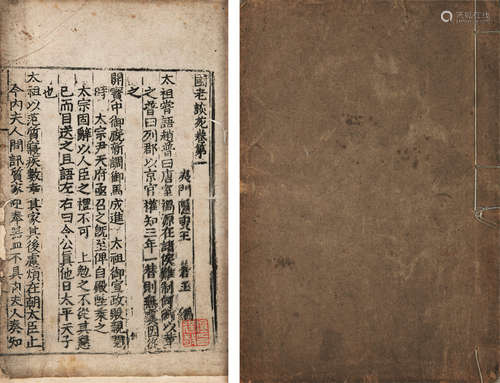 國老談苑卷第一
夷門隱叟王 君玉 編
太祖嘗語趙普曰唐室禍源在諸侯難制何術以革
之普曰列郡以京官權知三年一替則無虞因從
之
開寶中御厩新調御馬成進 太祖御宣政殿親閱
時 太宗尹天府亟召之旣至俾自殿陛乘之
太宗固辭以人臣之禮不可 上勉之不從其意
已而目送之且語左右曰令公真他日太平天子
也
太祖以范質寢疾數幸其家其後慮煩在朝大臣止
令內夫人問訊質家迎奉器皿不具內夫人奏知